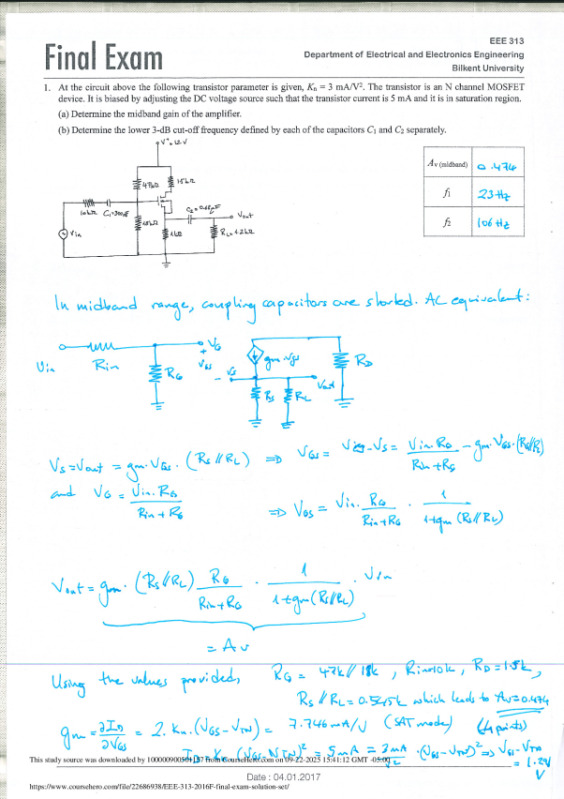 EEE 313
Final Exam
Department of Electrical and Electronics Engineering
Bilkent University
1. At the circuit above the following transistor parameter is given, Kn = 3 mA/V². The transistor is an N channel MOSFET
device. It is biased by adjusting the DC voltage source such that the transistor current is 5 mA and it is in saturation region.
(a) Determine the midband gain of the amplifier.
(b) Determine the lower 3-dB cut-off frequency defined by each of the capacitors C1 and C2 separately.
V+ = 12V
Av (midband) 0.474
f1 23 Hz
f2 106 Hz
47kΩ
10kΩ
Vin
1kΩ
Vout
RL = 1.2kΩ
In midband range, coupling capacitors are shorted. AC equivalent:
Vin Rin RG VG gm Vgs RD
Vs Rs RL Vout
Vs = Vout = gm. VGS. (Rs // RL) => VGS = VG - Vs = Vin. RG / Rin + RG - gm. VGS. (Rs//RL)
and VG = Vin. RG / Rin + RG
=> VGS = Vin. RG / Rin + RG . 1 / 1+gm (Rs//RL)
Vout = gm. (Rs//RL) RG / Rin + RG . 1 / 1+gm(Rs//RL) . Vin
= Av
Using the values provided, RG = 47k // 18k, Rin=10k, RD = 1.5k,
Rs // RL = 0.545k which leads to Av=0.474
gm = ∂ID / ∂VGS = 2. Kn. (VGS - VTN) = 7.746 mA/V (SAT mode) (4 points)
ID = Kn (VGS - VTN)² = 5mA = 3mA / V² . (VGS - VTN)² => VGS - VTN
= 1.29 V
This study source was downloaded by from CourseHero.com on 09-22-2023 15:41:12 GMT -05:00
Date : 04.01.2017
https://www.coursehero.com/file/22686938/EEE-313-2016F-final-exam-solution-set/